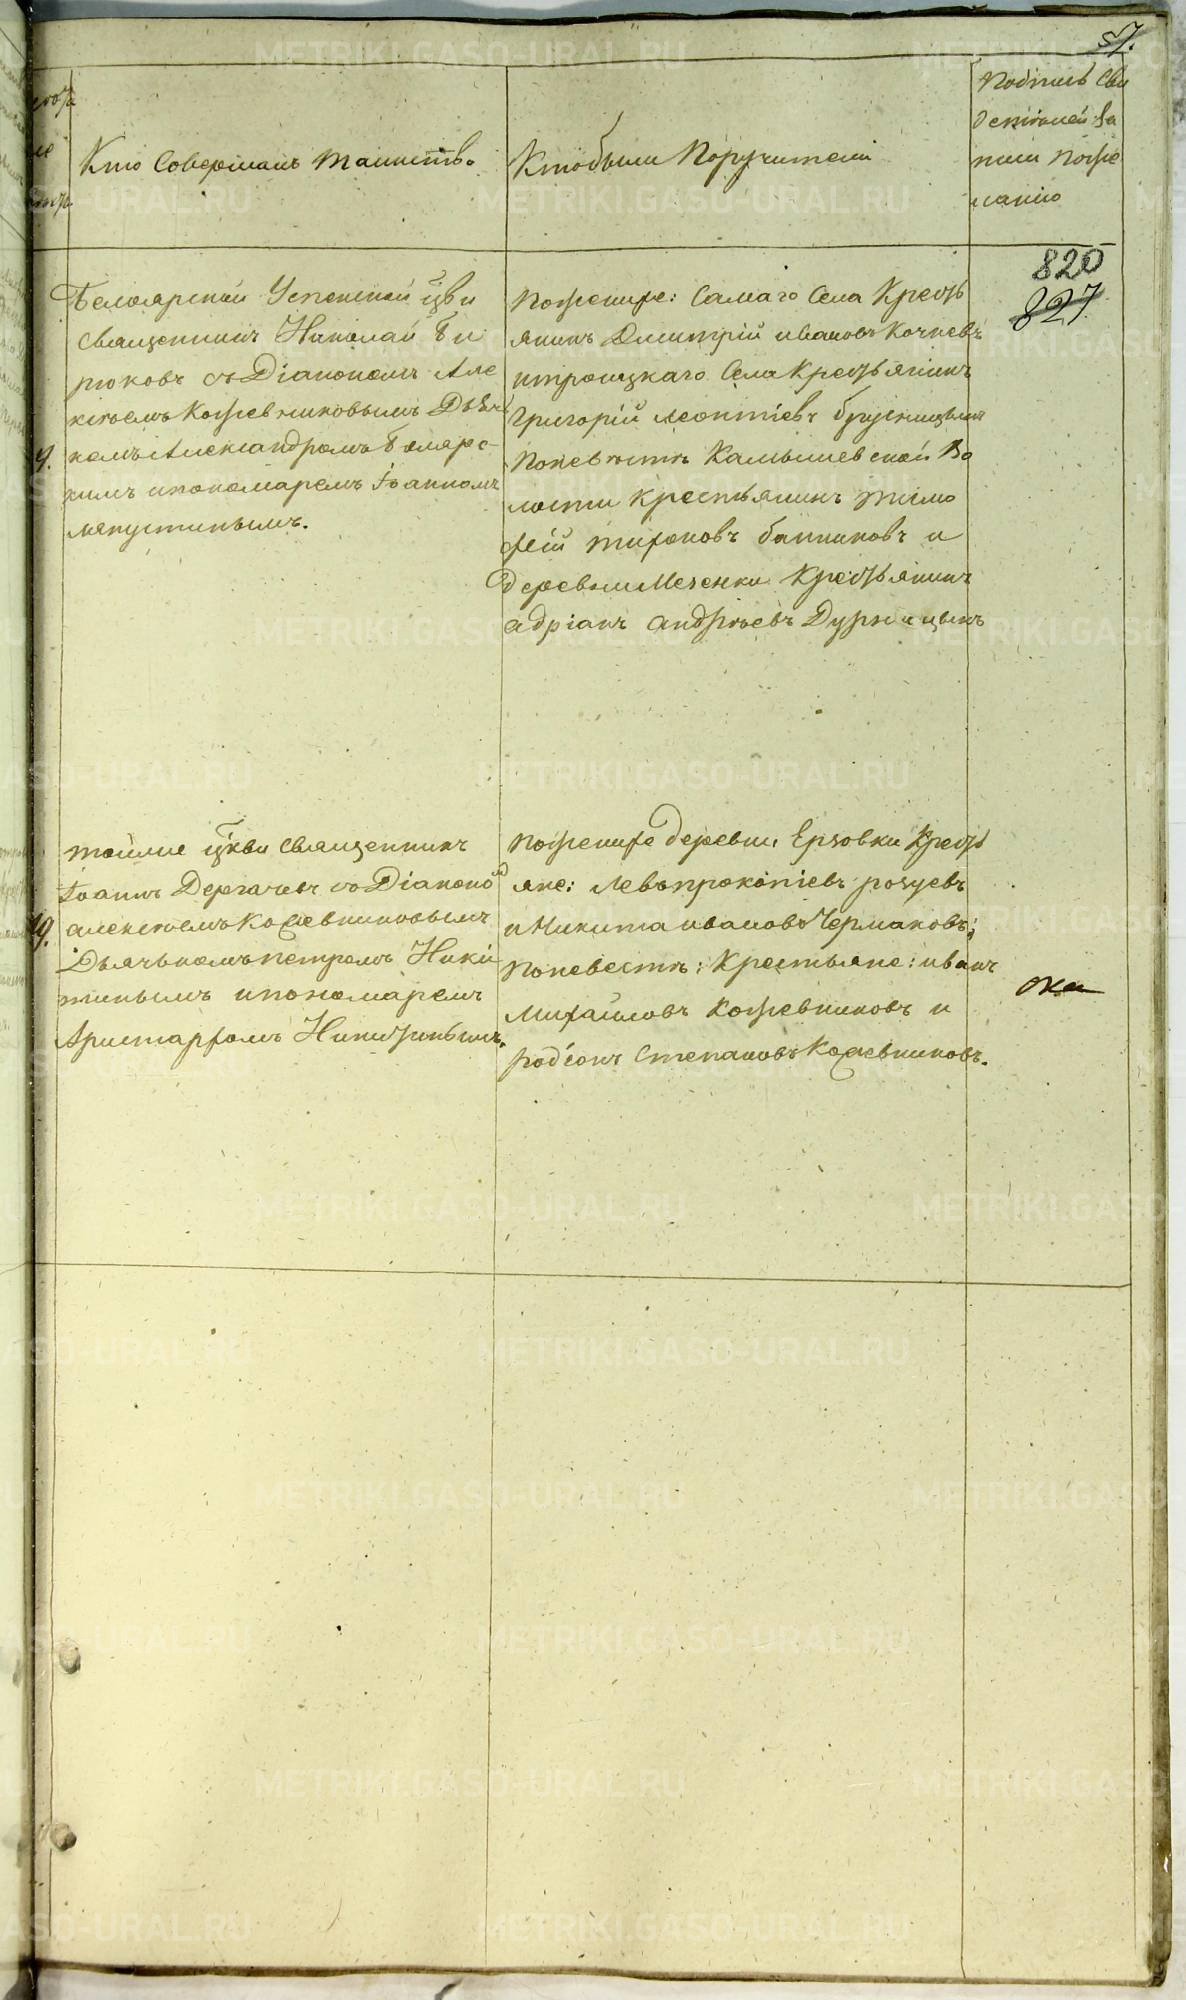 57.
Кто Совершалъ Таинство
Кто были Поручители
Подпись Сви
детелей За
писи по же
ланию
820
827
Белоярской Успенской цркви
Священникъ Николай Би
рюковъ съ Діакономъ Але
ксеемъ Кожевниковымъ Дьяч
комъ Александромъ
9.
кимъ ипономаремъ Іоанномъ
ляпустинымъ.
Пожениху: Самаго Села Кресть
янинъ Дмитрій ивановъ Кочневъ
итроицкаго Села Крестьянинъ
Григорій леонтіевъ брусницынъ
Поневѣстѣ Камышевской Во
лости Крестьянинъ тимо
фей тихоновъ банниковъ и
деревни Мезенки Крестьянинъ
адріанъ андреевъ Дурницынъ
тойже цркви Священникъ
Іоаннъ Дергачевъ съ Діакono
алексеемъ Кожевниковымъ
19.
Дьячькомъ петромъ Ники
тинымъ ипономаремъ
Аристархомъ Никитинымъ.
Пожениху деревни Ерзовки Кресть
яне: левъ прокопіевъ розуевъ
и Никита ивановъ Чермаковъ;
Поневестѣ: Крестьяне: иванъ
Михайловъ Кожевниковъ и
родіонъ Степановъ Кожевниковъ.
METRIKI.GASO-URAL.RU